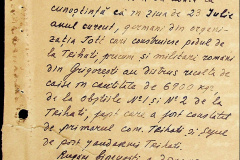 cunoștință că în ziua de 23 Iulie
anul curent, germanii din organi-
zația Tott cari construiesc podul de
la Trihati, precum și militarii români
din Grigorești au distrus recolta de
caise în cantitate de 6900 kgr,
de la obștiile Nº1 și Nº2 de la
Trihati, fapt care a fost constatat
de primarul com. Trihati și Șeful
de post jandarmi Trihati.
Rugăm